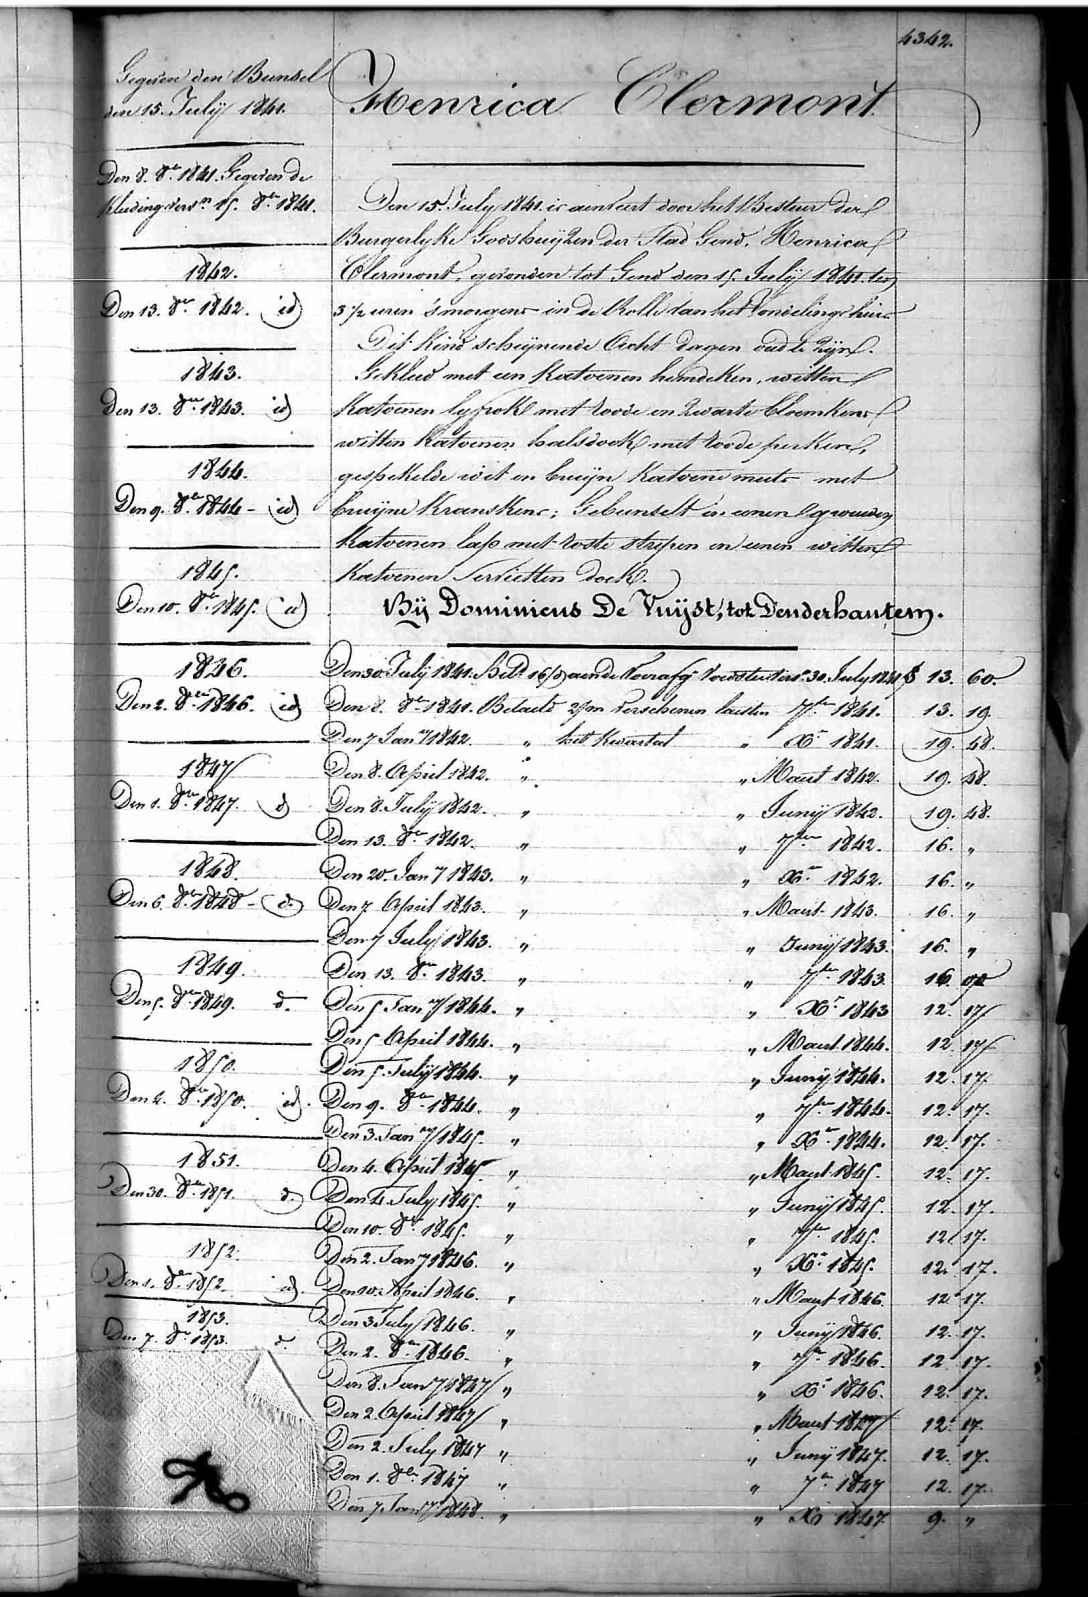 4342.
Gegeven den Bunsel
den 15. July 1841.
Den 8. 8re 1841. Gegeven de
kleeding versn 15. 8re 1841.
1842.
Den 13. 8re 1842. id
1843.
Den 13. 8re 1843. id
1844.
Den 9. 8re 1844 - id
1845.
Den 10. 8re 1845. id
1846.
Den 2. 8re 1846. id
1847
Den 1. 8re 1847. d
1848.
Den 6. 8re 1848 - d.
1849.
Den 5. 8re 1849. d.
1850.
Den 2. 8re 1850. id.
1851.
Den 30. 8re 1851. d.
1852.
Den 1. 8re 1852. id.
1853.
Den 7. 8re 1853. d.
Henrica Clermont
Den 15. July 1841. is aenveert door het Bestuer der
Burgerlyke Godshuyzen der Stad Gend, Henrica
Clermont, gevonden tot Gend den 15. July 1841. ten
3 1/2 uren 's morgens in de Rolle van het Vondelingshuis
Dit kind schynende Acht dagen oud te zyn.
Gekleed met een katoenen hemdeken, witten
katoenen lyfrok met roode en zwarte bloemkens
witten katoenen halsdoek met roode perken,
gespekelde wit en bruyn katoene muts met
bruyne kranskens; Gebunselt in eenen
katoenen lap met roste strepen en eenen witten
katoenen Servietten doek.
Bij Dominicus De Vuijst, tot Denderhautem.
Den 30 July 1841. 30. July 1841 13. 60.
Den 8. 8re 1841. Betaeld verschenen laesten 7bre 1841. 13. 19.
Den 7 Jany 1842. " het kwartael " Xr 1841. 19. 48.
Den 8. April 1842. " " Maert 1842. 19. 48.
Den 8. July 1842. " " Junij 1842. 19. 48.
Den 13. 8re 1842. " " 7bre 1842. 16. "
Den 20. Jany 1843. " " Xr 1842. 16. "
Den 7 April 1843. " " Maert 1843. 16. "
Den 7 July 1843. " " Junij 1843. 16. "
Den 13. 8re 1843. " " 7bre 1843. 16.
Den 5 Jany 1844. " " Xr 1843 12. 17
Den 5 April 1844. " " Maert 1844. 12. 17
Den 5. July 1844. " " Junij 1844. 12. 17.
Den 9. 8re 1844. " " 7bre 1844. 12. 17.
Den 3. Jany 1845. " " Xr 1844. 12. 17.
Den 4. April 1845. " " Maert 1845. 12. 17.
Den 4. July 1845. " " Junij 1845. 12. 17.
Den 10. 8re 1845. " " 7bre 1845. 12. 17.
Den 2. Jany 1846. " " Xr 1845. 12. 17.
Den 10. April 1846. " " Maert 1846. 12. 17.
Den 3 July 1846. " " Junij 1846. 12. 17.
Den 2. 8re 1846. " " 7bre 1846. 12. 17.
Den 8. Jany 1847 " " Xr 1846. 12. 17.
Den 2. April 1847 " " Maert 1847 12. 17.
Den 2. July 1847 " " Junij 1847. 12. 17.
Den 1. 8re 1847 " " 7bre 1847 12. 17.
Den 7. Jany 1848. " " Xr 1847 9. "